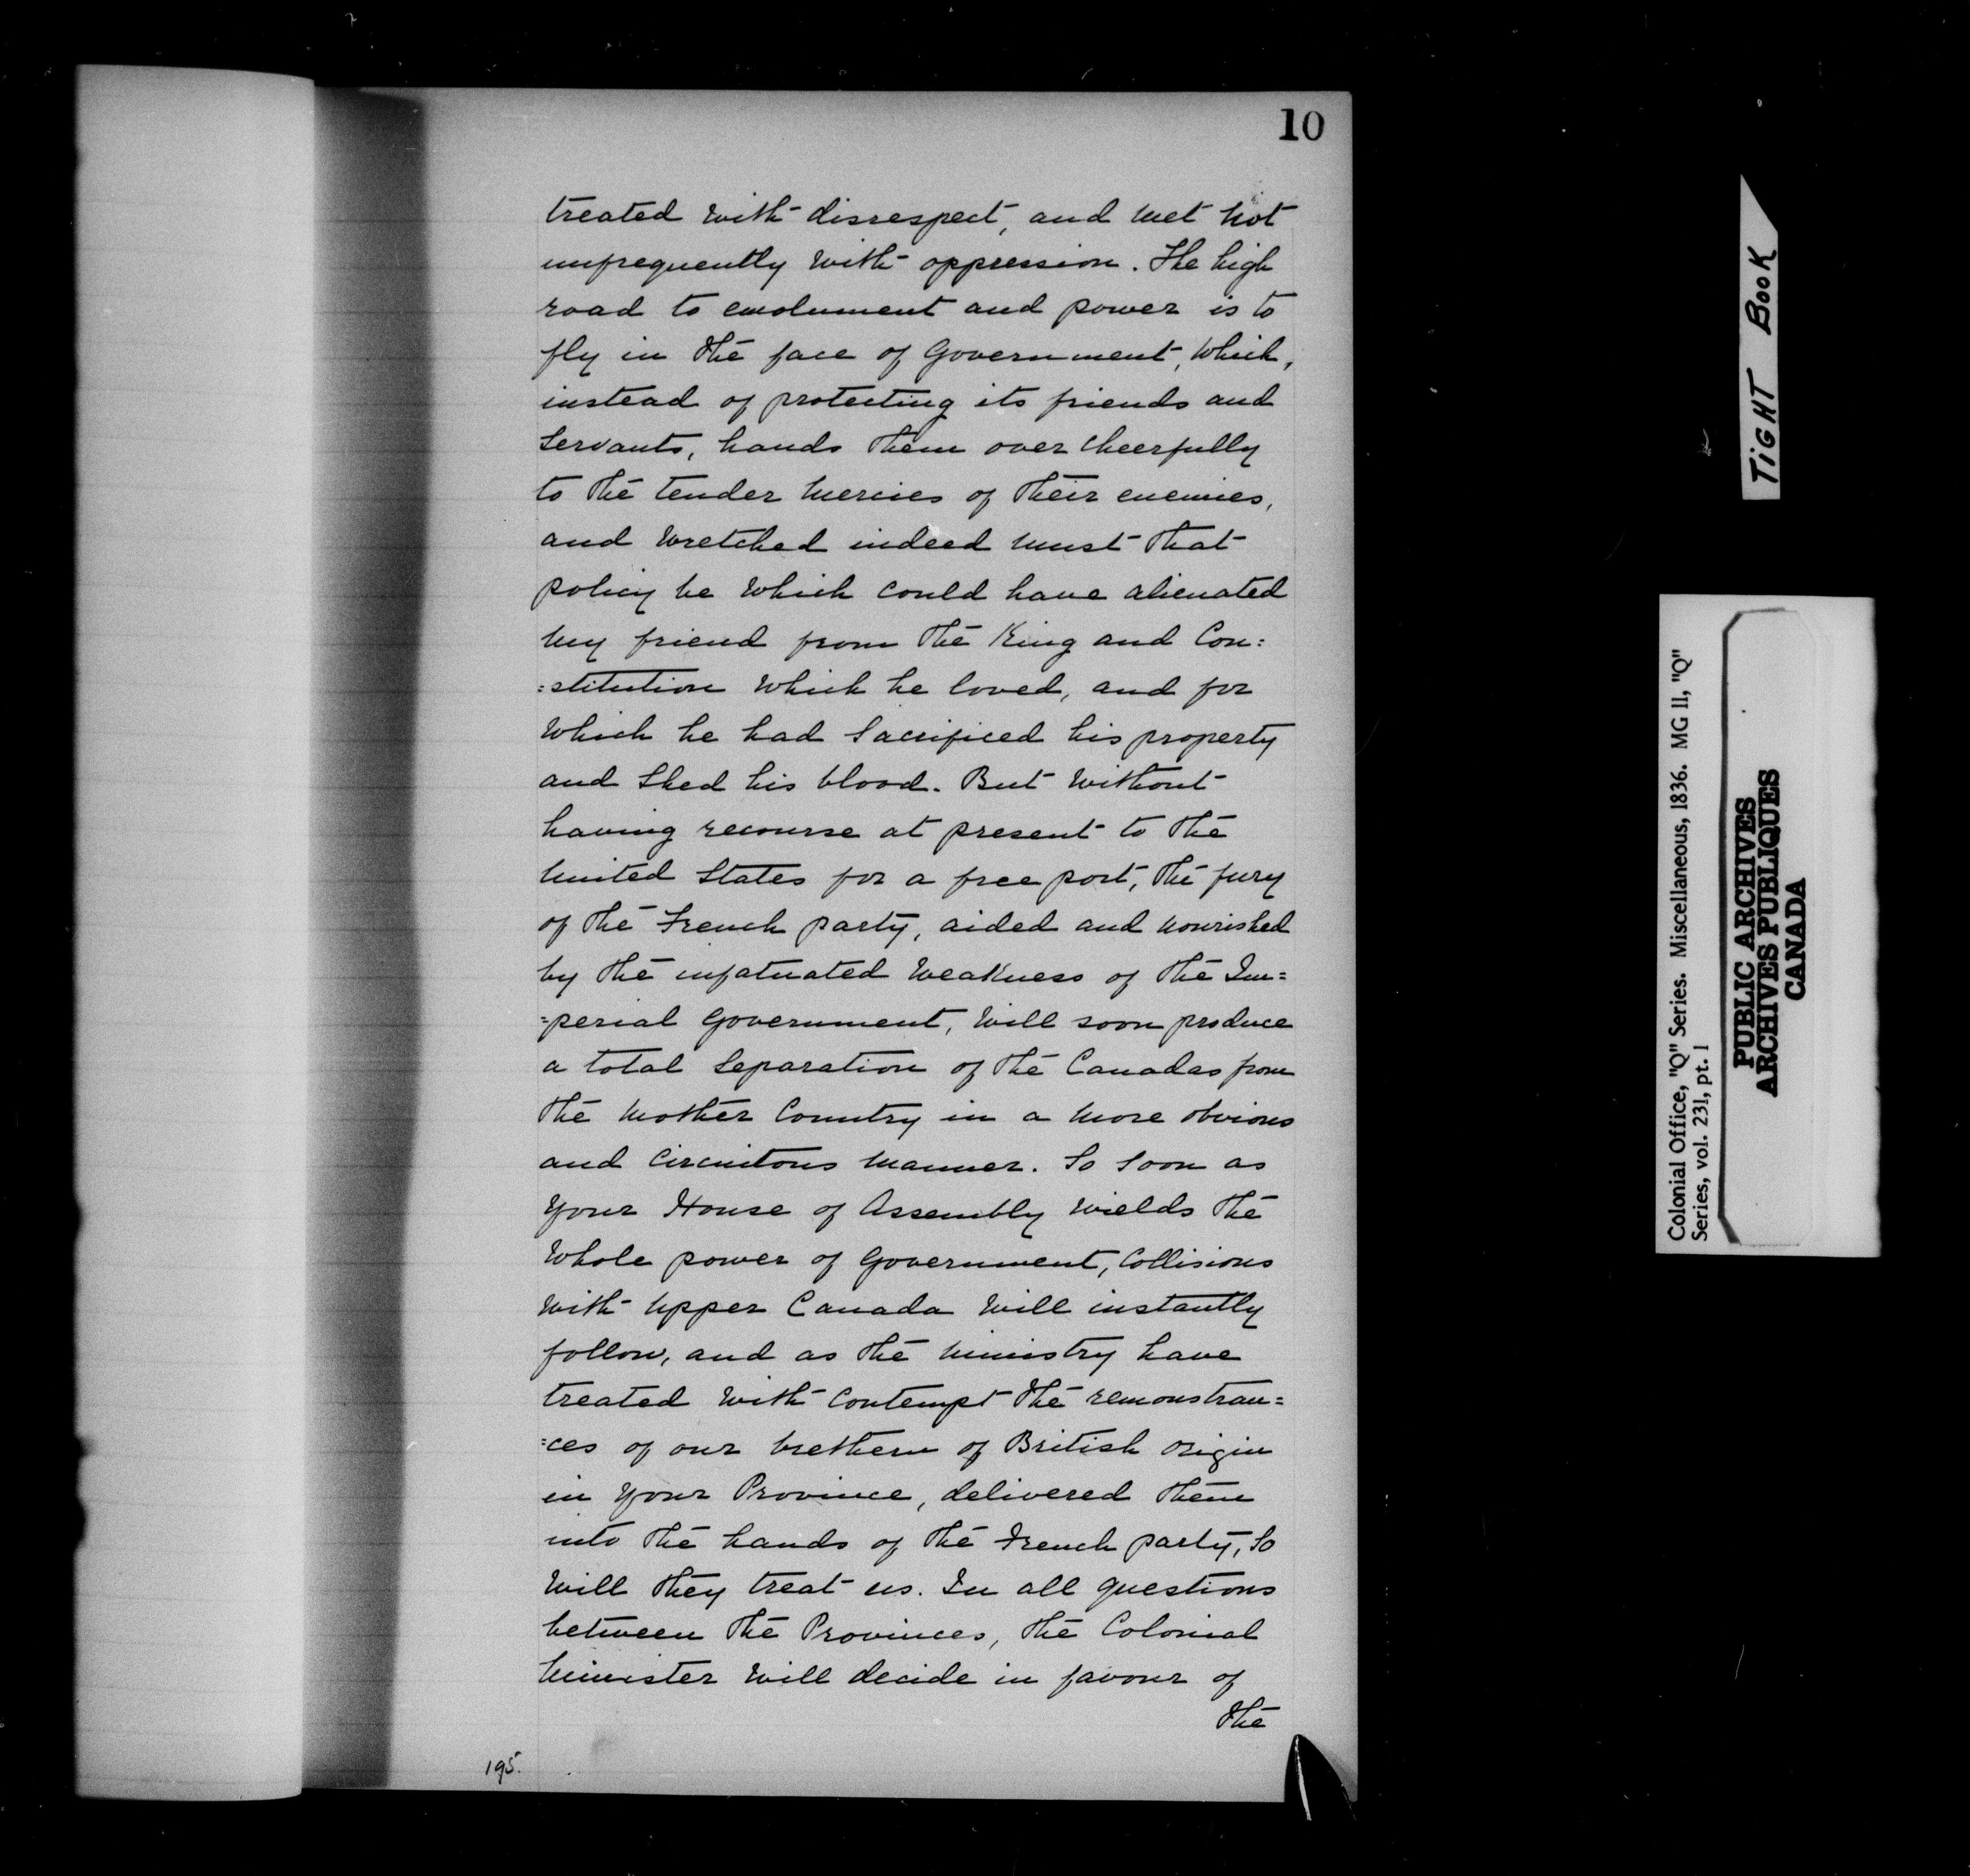 10
treated with disrespect, and met not
unfrequently with oppression. The high
road to emolument and power is to
fly in the face of Government, which,
instead of protecting its friends and
servants, hands them over cheerfully
to the tender mercies of their enemies,
and wretched indeed must that
policy be which could have alienated
my friend from the King and Con:
:stitution which he loved, and for
which he had sacrificed his property
and shed his blood. But without
having recourse at present to the
United States for a free port, the fury
of the French party, aided and nourished
by the infatuated weakness of the Im=
=perial Government, will soon produce
a total separation of the Canadas from
the Mother Country in a more obvious
and circuitous manner. So soon as
your House of Assembly wields the
whole power of Government, collisions
with Upper Canada will instantly
follow, and as the ministry have
treated with contempt the remonstran=
=ces of our brethern of British origin
in your Province, delivered them
into the hands of the French party, so
will they treat us. In all questions
between the Provinces, the Colonial
Minister will decide in favour of
the
195.
TIGHT BOOK
Colonial Office, "Q" Series. Miscellaneous, 1836. MG 11, "Q"
Series, vol. 231, pt. 1
PUBLIC ARCHIVES
ARCHIVES PUBLIQUES
CANADA